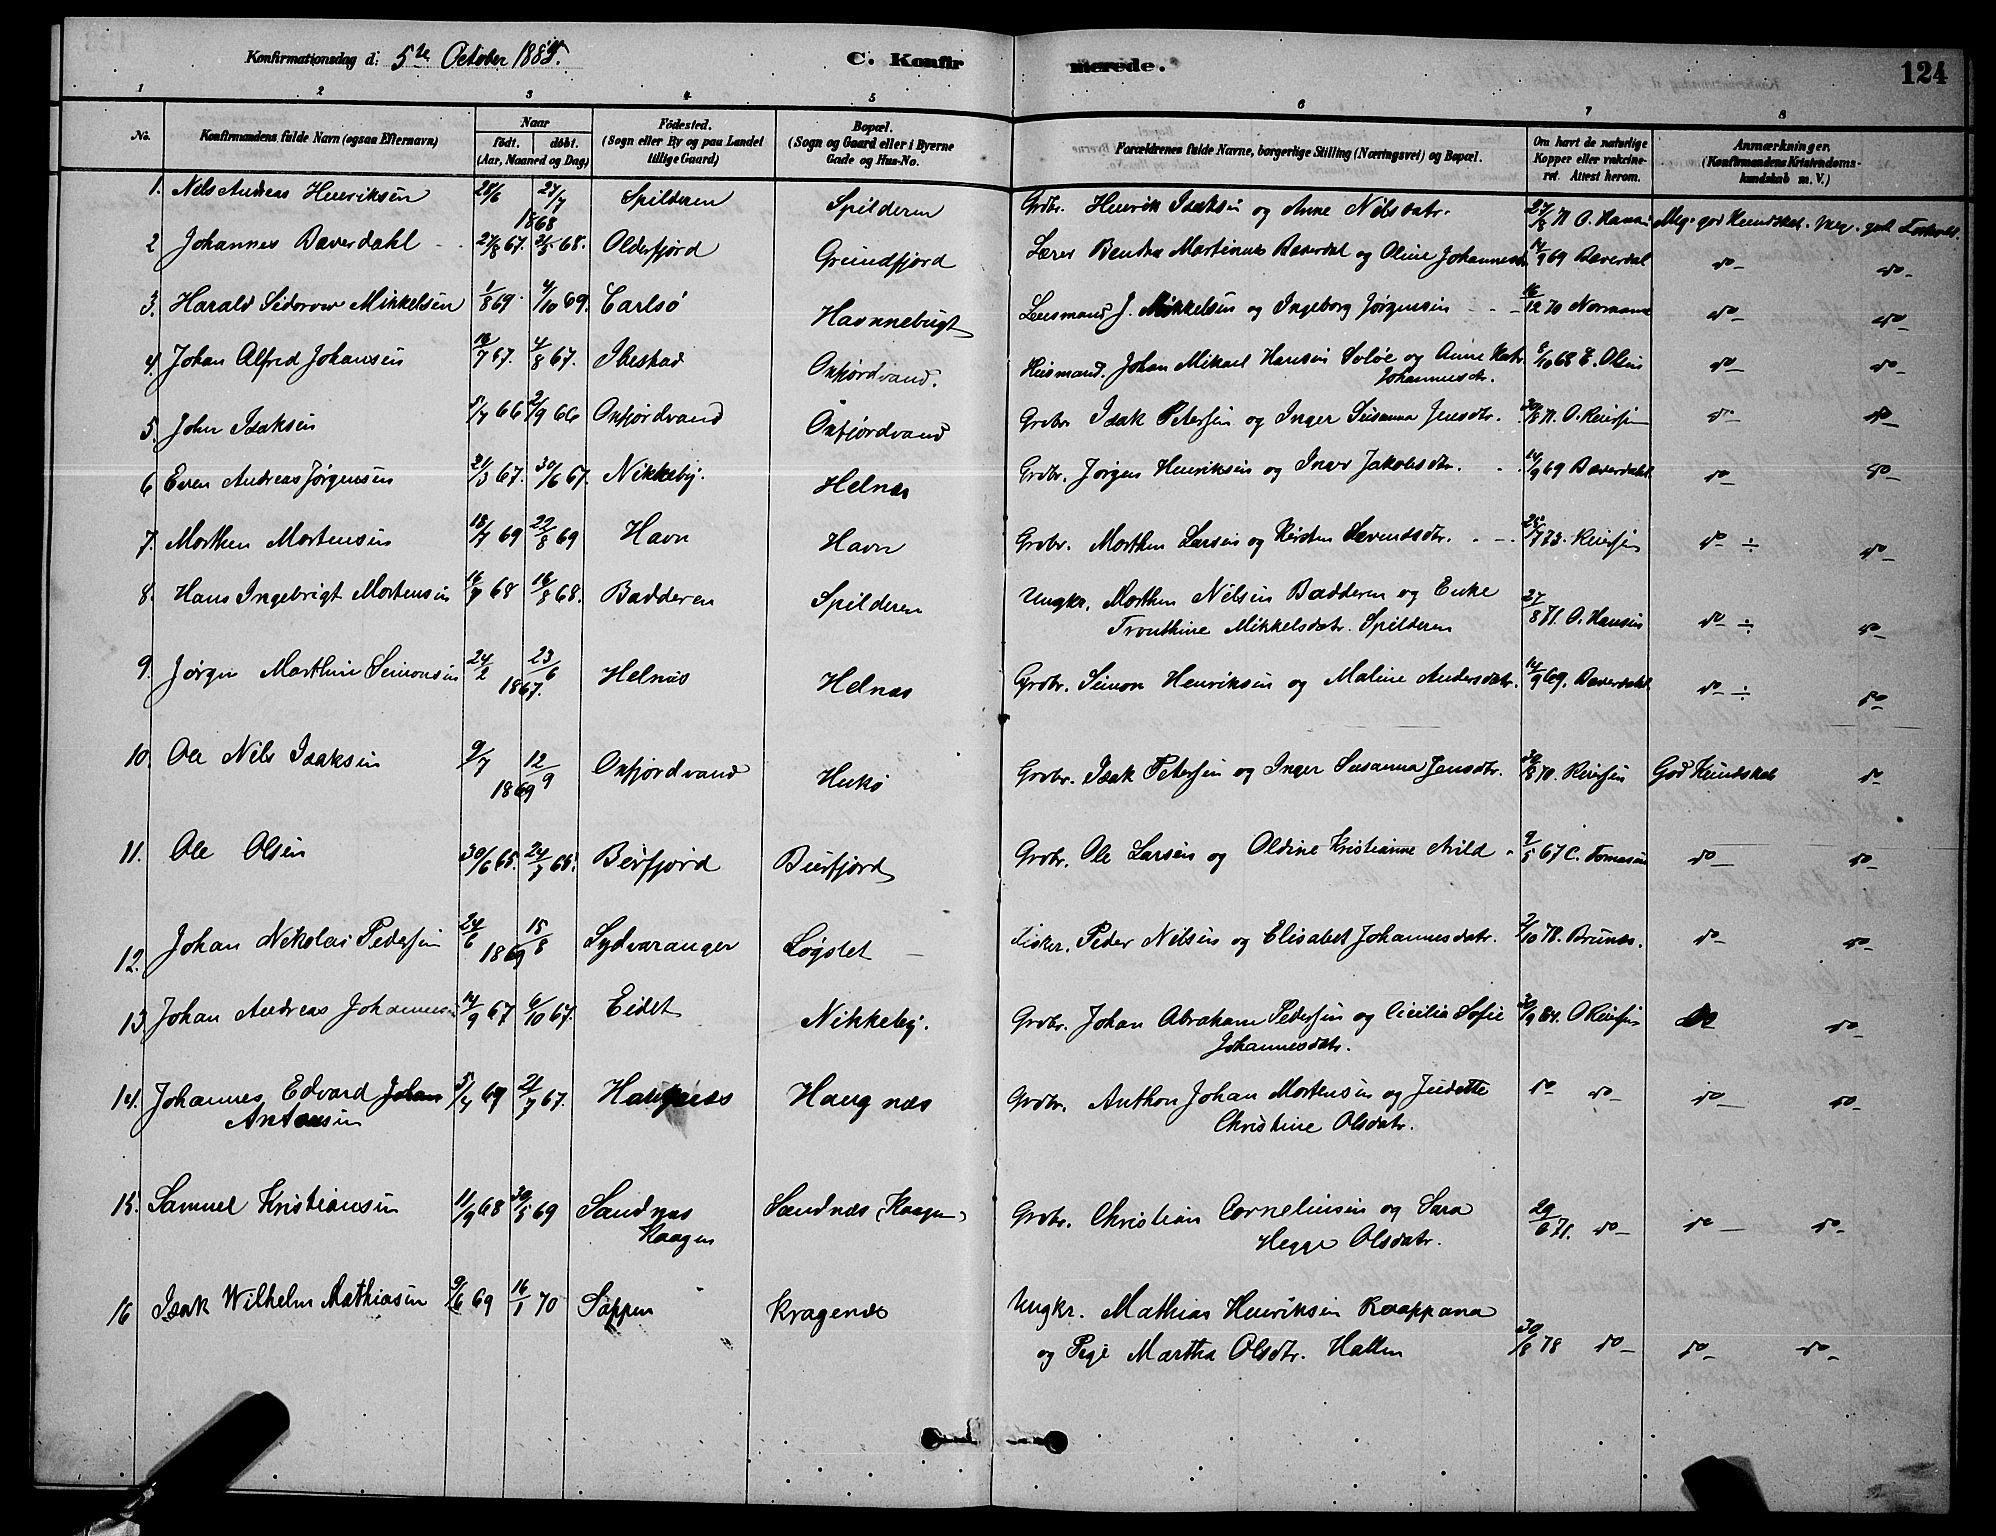 Konfirmationsdag d: 5te October 1885. C. Konfirmerede. 124
1 2 3 4 5 6 7 8
No. Konfirmandens fulde Navn (ogsaa Efternavn) Naar født. døbt. (Aar, Maaned og Dag) Fødested. (Sogn eller By og paa Landet tillige Gaard) Bopæl. (Sogn og Gaard eller i Byerne Gade og Hus-No. Forældrenes fulde Navne, borgerlige Stilling (Næringsvei) og Bopæl. Om havt de naturlige Kopper eller vakcineret. Attest herom. Anmærkninger. (Konfirmandens Kristendomskundskab m. V.)
1. Nils Andreas Henriksen 28/6 24/7 1868 Spilderen Spilderen Grdbr. Henrik Isaksen og Anne Nilsdatr. 27/8 71 O. Hansen Meg. god Kundskab. Meg. god Forhold.
2 Johannes Bæverdahl 27/8 67. 2/5 68. Olderfjord Grundfjord Lærer Bendra Martinus Bæverdal og Oline Johannesdr 14/9 69 Bæverdal do do
3. Harald Sidorow Mikkelsen 1/8 69. 4/10 69. Carlsø Havnnebugt Leiesmand J. Mikkelsen og Ingeborg Jørgensen 16/12 70 Normann do do
4. Johan Alfred Johansen 16/7 67. 4/8 67. Ibestad Oxfjordvand. Husmand. Johan Mikael Hansen og Anne Johannesdr. 8/10 68 E. Olsen do do
5. John Isaksen 5/7 66 2/9 66 Oxfjordvand Oxfjordvand Grdbr. Isak Petersen og Inger Susanna Jensdtr. 30/8 71. O. Reiersen do do
6 Even Andreas Jørgensen 21/3 67. 30/6 67. Nikkeby. Helnæs Grdbr. Jørgen Henriksen og Inger Jakobsdtr. 14/9 69 Bæverdahl do do
7. Morthen Mortensen 18/7 69 22/8 69 Havn Havn Grdbr. Morthen Larsen og Kirsten Sevendsdtr. 28/7 73. Reiersen do ÷ do
8. Hans Ingebrigt Mortensen 16/7 68 16/8 68. Badderen Spilderen Ungkr. Morthen Nilsen Badderen og Enke Tronthine Mikkelsdatr. Spilderen 27/8 71. O. Hansen do ÷ do
9. Jørgen Marthin Simonsen 24/2 23/6 1867. Helnæs Helnæs Grdbr. Simon Henriksen og Maline Andersdatr. 14/9 69. Bæverdahl do ÷ do
10. Ole Nils Isaksen 9/7 12/9 1869 Oxfjordvand Hukø Grdbr. Isak Petersen og Inger Susanna Jensdtr. 30/8 70. Reiersen God Kundskab do
11. Ole Olsen 30/6 65. 24/7 65. Burfjord Burfjord Grdbr. Ole Larsen og Oldine Kristianne Arild 9/5 67 C. Tomasen do do
12. Johan Nikolai Pedersen 24/6 15/8 1869 Sydvaranger Løgslet Fisker. Peder Nilsen og Elisabet Johannesdatr. 2/10 78. Brunæs. do do
13. Johan Andreas Johannesen 14/9 67 6/10 67. Eidet Nikkeby. Grdbr. Johan Abraham Pedersen og Cicilia Sofie Johannesdatr. 30/9 84. O Reiersen do do
14. Johannes Edvard Johan Antonsen 5/4 69 2/7 67. Haugnæs Haugnæs Grdbr. Anthon Johan Mortensen og Judette Christine Olsdatr. do do do do
15. Samuel Kristiansen 11/9 68 30/5 69 Sandnæs Kaagen Sandnæs (Kaagen) Grdbr. Christian Corneliusen og Sara Hegge Olsdatr. 29/6 71. do do do
16 Isak Wilhelm Mathiasen 9/6 69 16/1 70 Sappen Kragenæs Ungkr. Mathias Henriksen Raappana og Pige Martha Olsdtr. Hallen 30/8 78 do do do